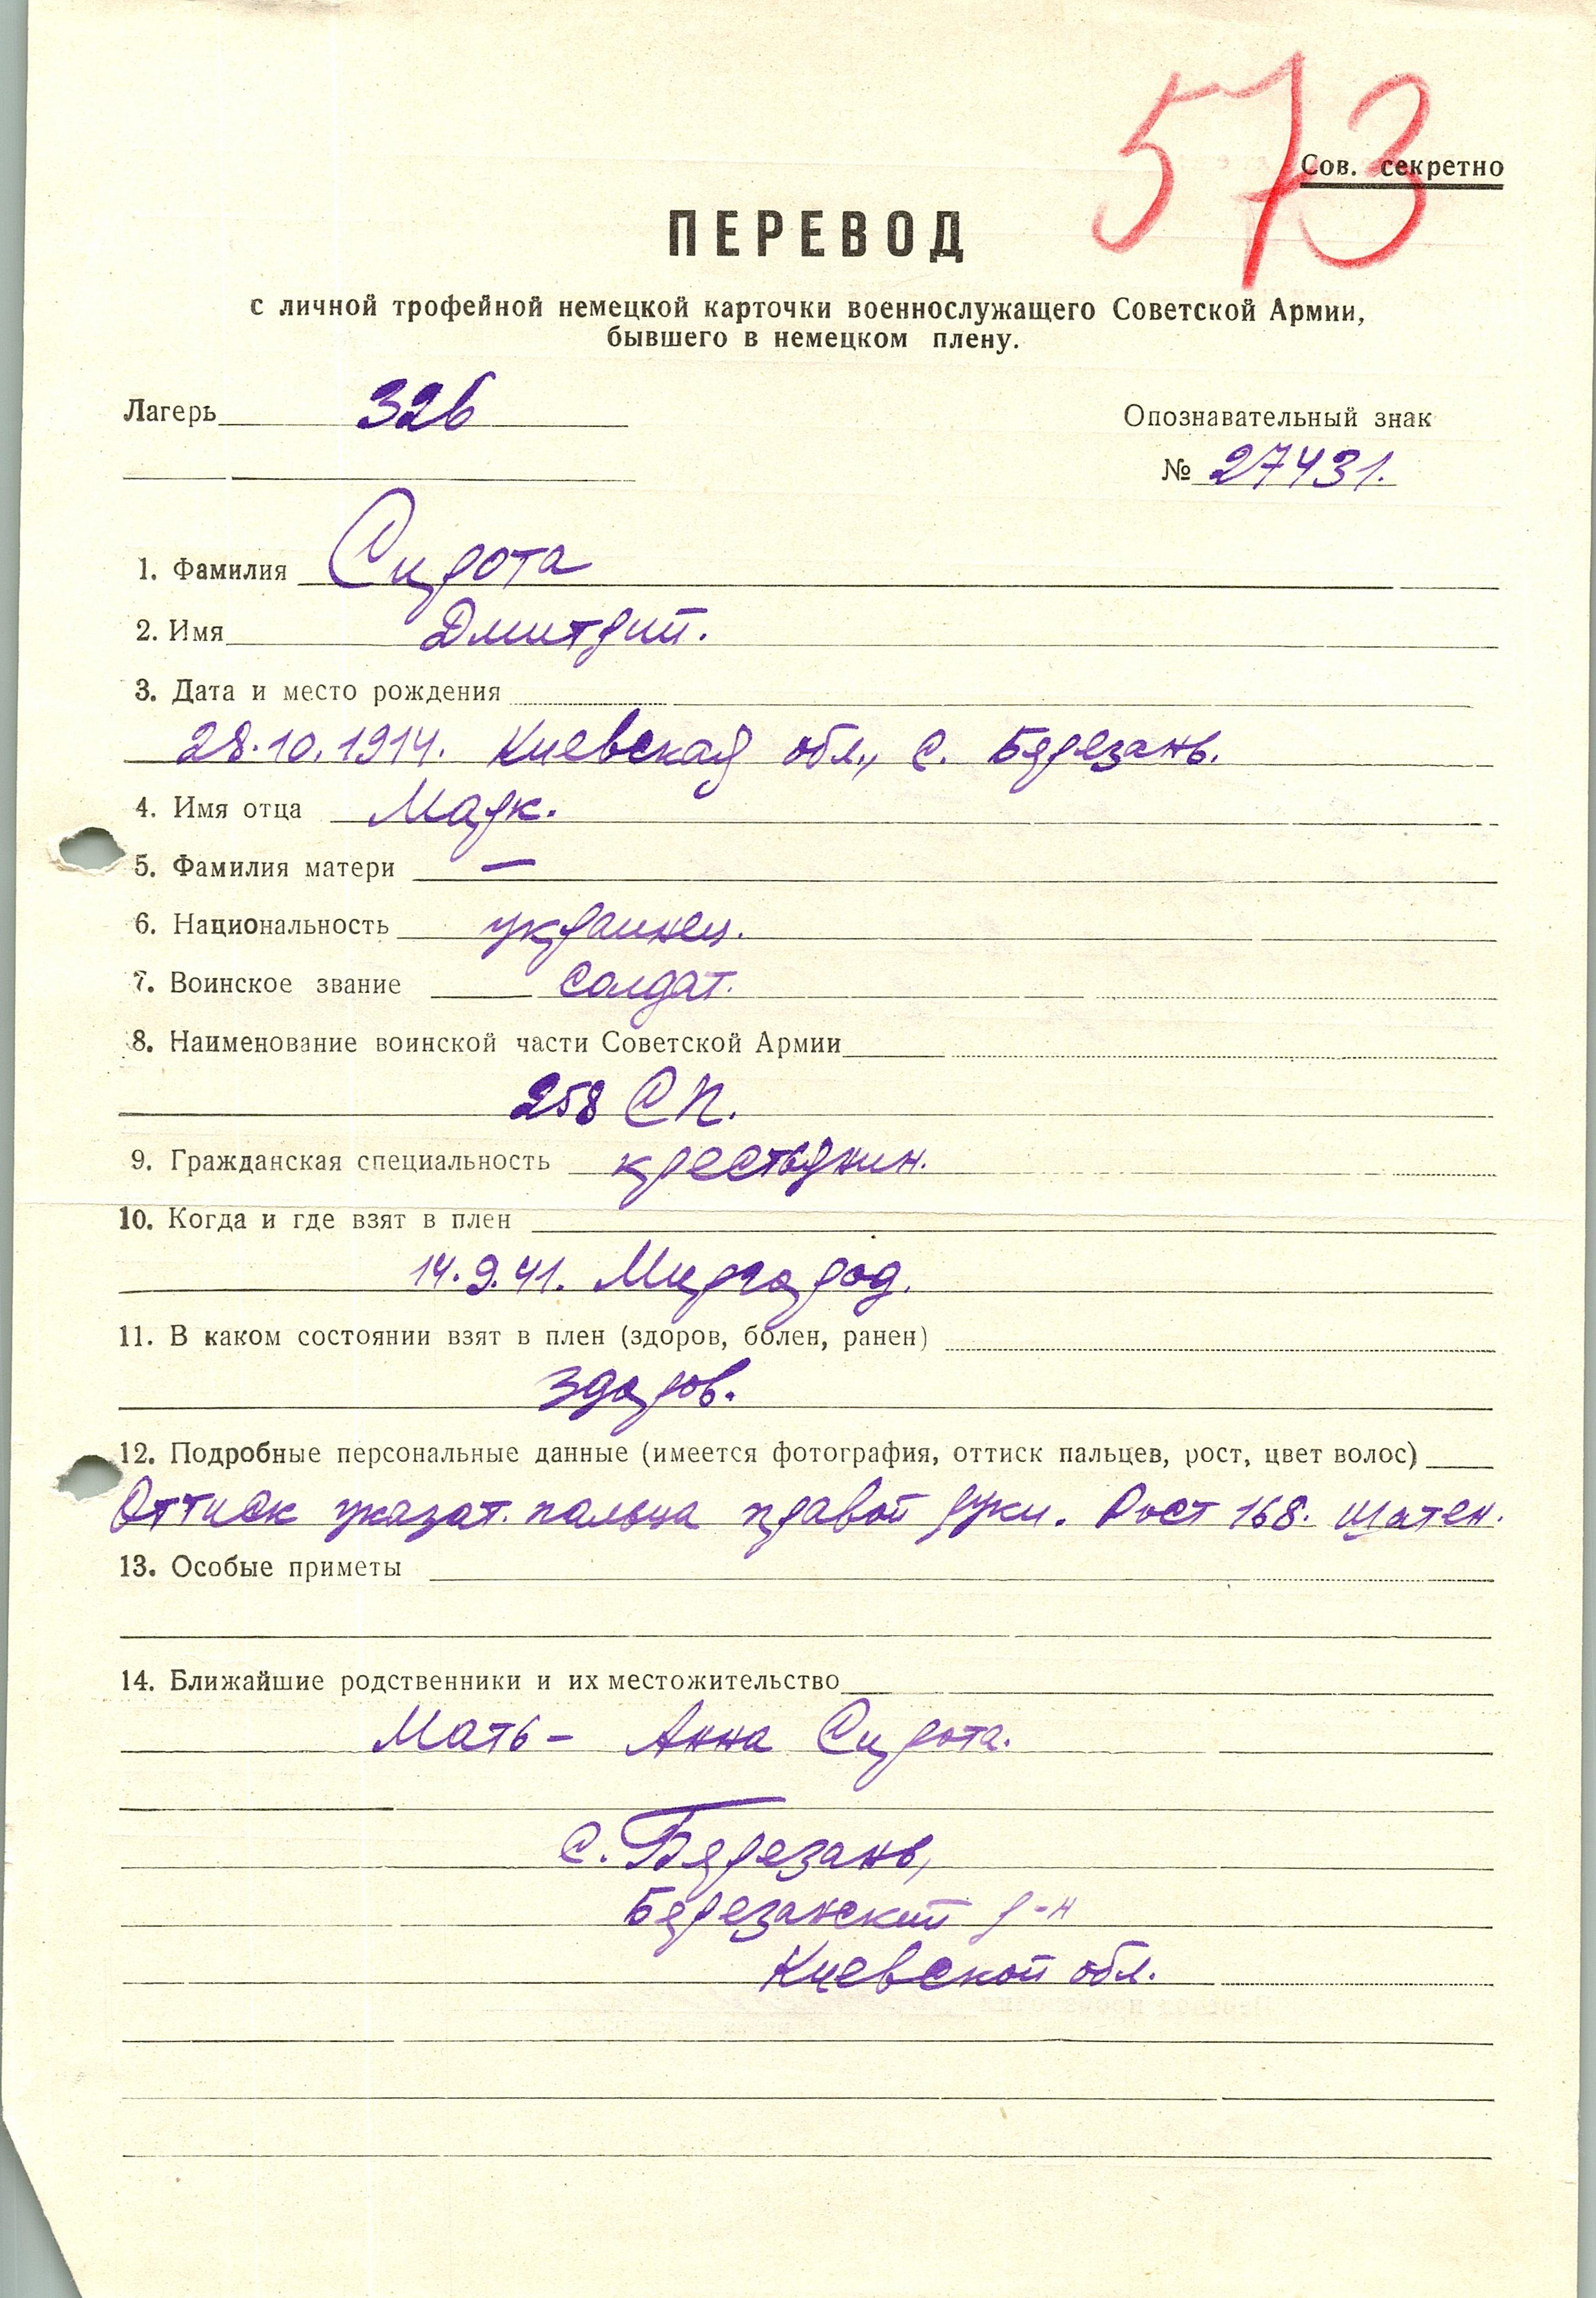 573
Сов. секретно
ПЕРЕВОД
с личной трофейной немецкой карточки военнослужащего Советской Армии,
бывшего в немецком плену.
Лагерь 326
Опознавательный знак
№ 27431.
1. Фамилия Сирота
2. Имя Дмитрий.
3. Дата и место рождения
28.10.1914. Киевская обл., с. Бярезань.
4. Имя отца Марк.
5. Фамилия матери —
6. Национальность украинец.
7. Воинское звание солдат.
8. Наименование воинской части Советской Армии
258 СП.
9. Гражданская специальность крестьянин.
10. Когда и где взят в плен
14.9.41. Миргород.
11. В каком состоянии взят в плен (здоров, болен, ранен)
здоров.
12. Подробные персональные данные (имеется фотография, оттиск пальцев, рост, цвет волос)
Оттиск указат. пальца правой руки. Рост 168. Шатен.
13. Особые приметы
14. Ближайшие родственники и их местожительство
Мать – Анна Сирота.
с. Бярезань,
Бярезанский р-н
Киевской обл.